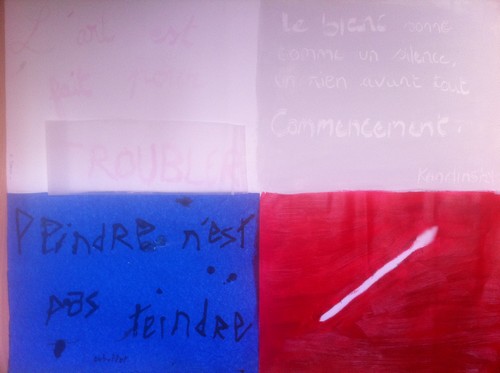 L'art est
fait pour
TROUBLER
Le blanc sonne
comme un silence,
un rien avant tout
Commencement.
Kandinsky
Peindre n'est
pas
teindre